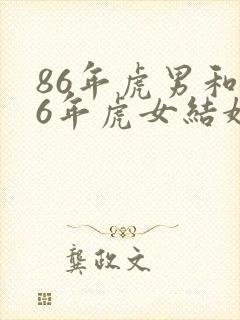 86年虎男和
6年虎女結
龔政文